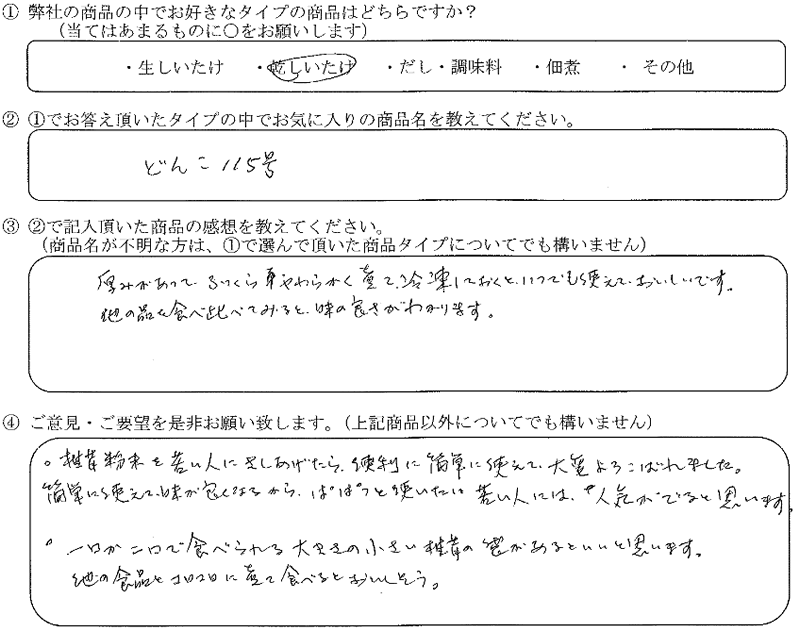 ① 弊社の商品の中でお好きなタイプの商品はどちらですか？
（当てはあまるものに〇をお願いします）
・生しいたけ ・乾しいたけ ・だし・調味料 ・佃煮 ・ その他
② ①でお答え頂いたタイプの中でお気に入りの商品名を教えてください。
どんこ 115号
③ ②で記入頂いた商品の感想を教えてください。
（商品名が不明な方は、①で選んで頂いた商品タイプについてでも構いません）
厚みがあって、ふっくら やわらかく煮て、冷凍しておくと、いつでも使えて、おいしいです。
他の品を食べ比べてみると、味の良さがわかります。
④ ご意見・ご要望を是非お願い致します。（上記商品以外についてでも構いません）
。椎茸粉末を若い人にさしあげたら、便利に簡単に使えて、大変よろこばれました。
簡単に使えて、味が良くなるから、ぱぱっと使いたい 若い人には、人気がでると思います。
。一口か二口で食べられる大きさの小さい椎茸の があるといいと思います。
他の食品とコロコロに煮て食べるとおいしそう。